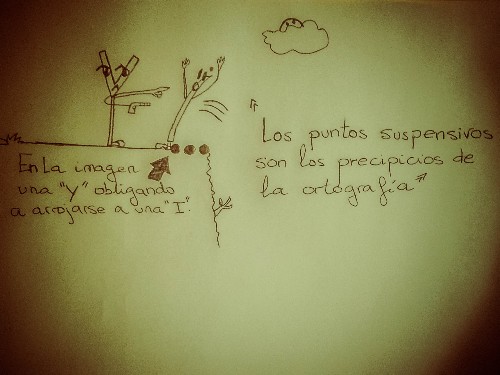 En La imagen
una "Y" obligando
a arrojarse a una "I".
"Los puntos suspensivos
son los precipicios de
la ortografía"